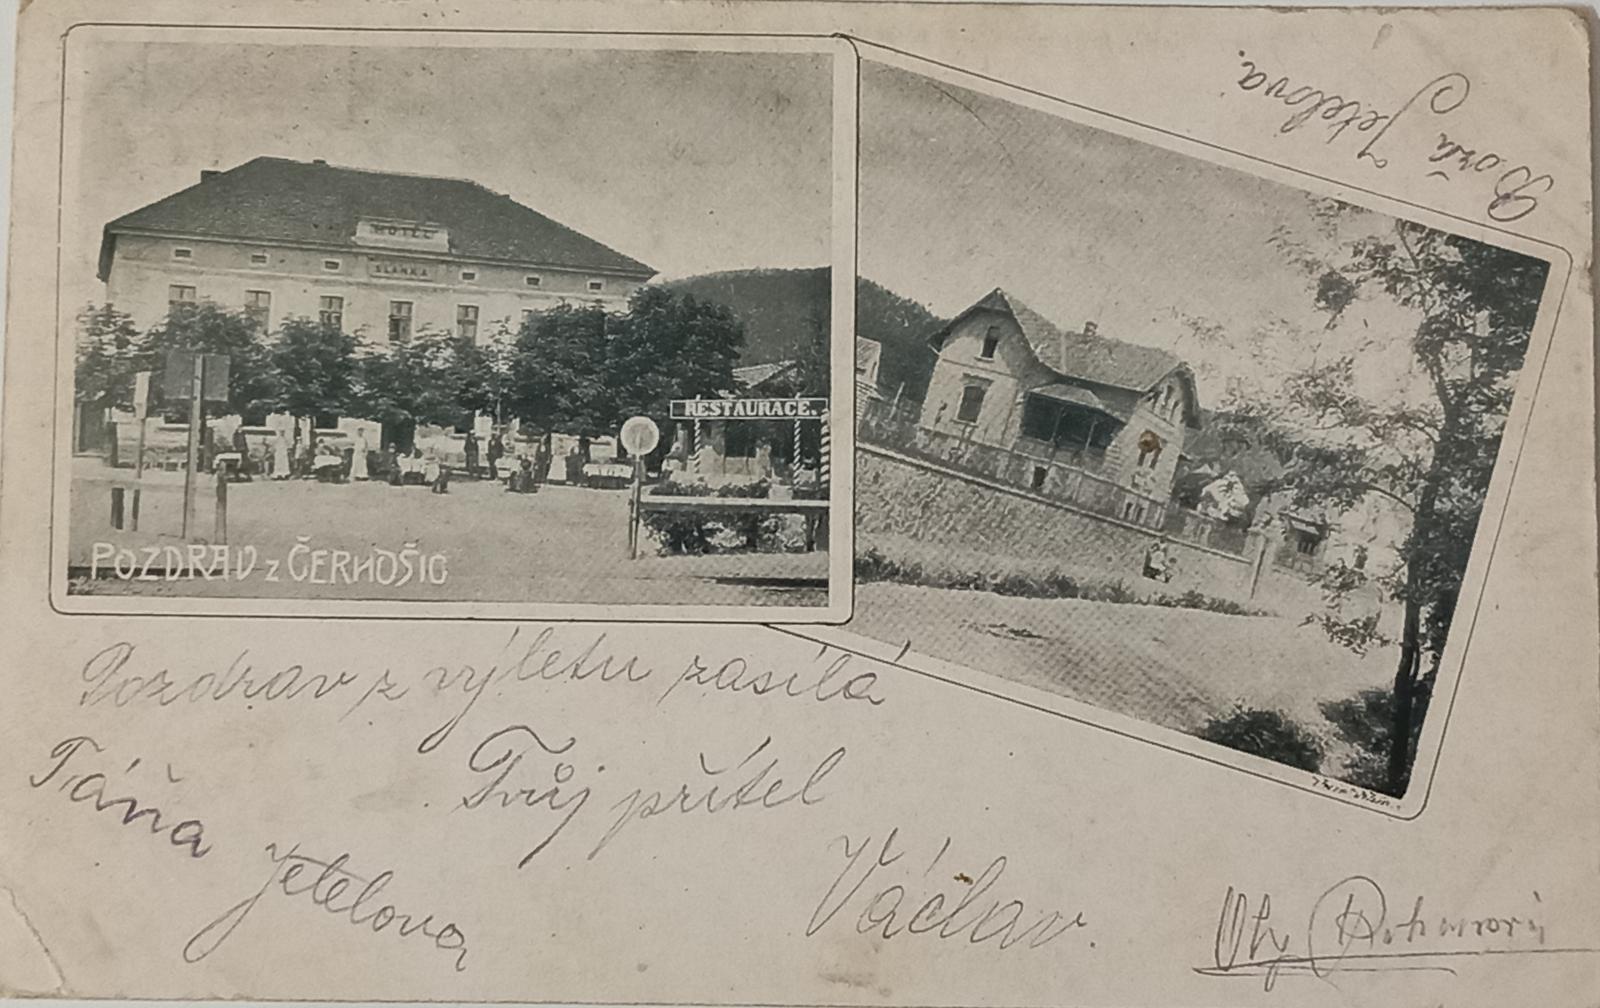 HOTEL
SLANKA
RESTAURACE.
POZDRAV z ČERNOŠIC
Boža Jetelova.
Pozdrav z výletu zasílá
Tvůj přítel
Václav.
Táňa
Jetelova